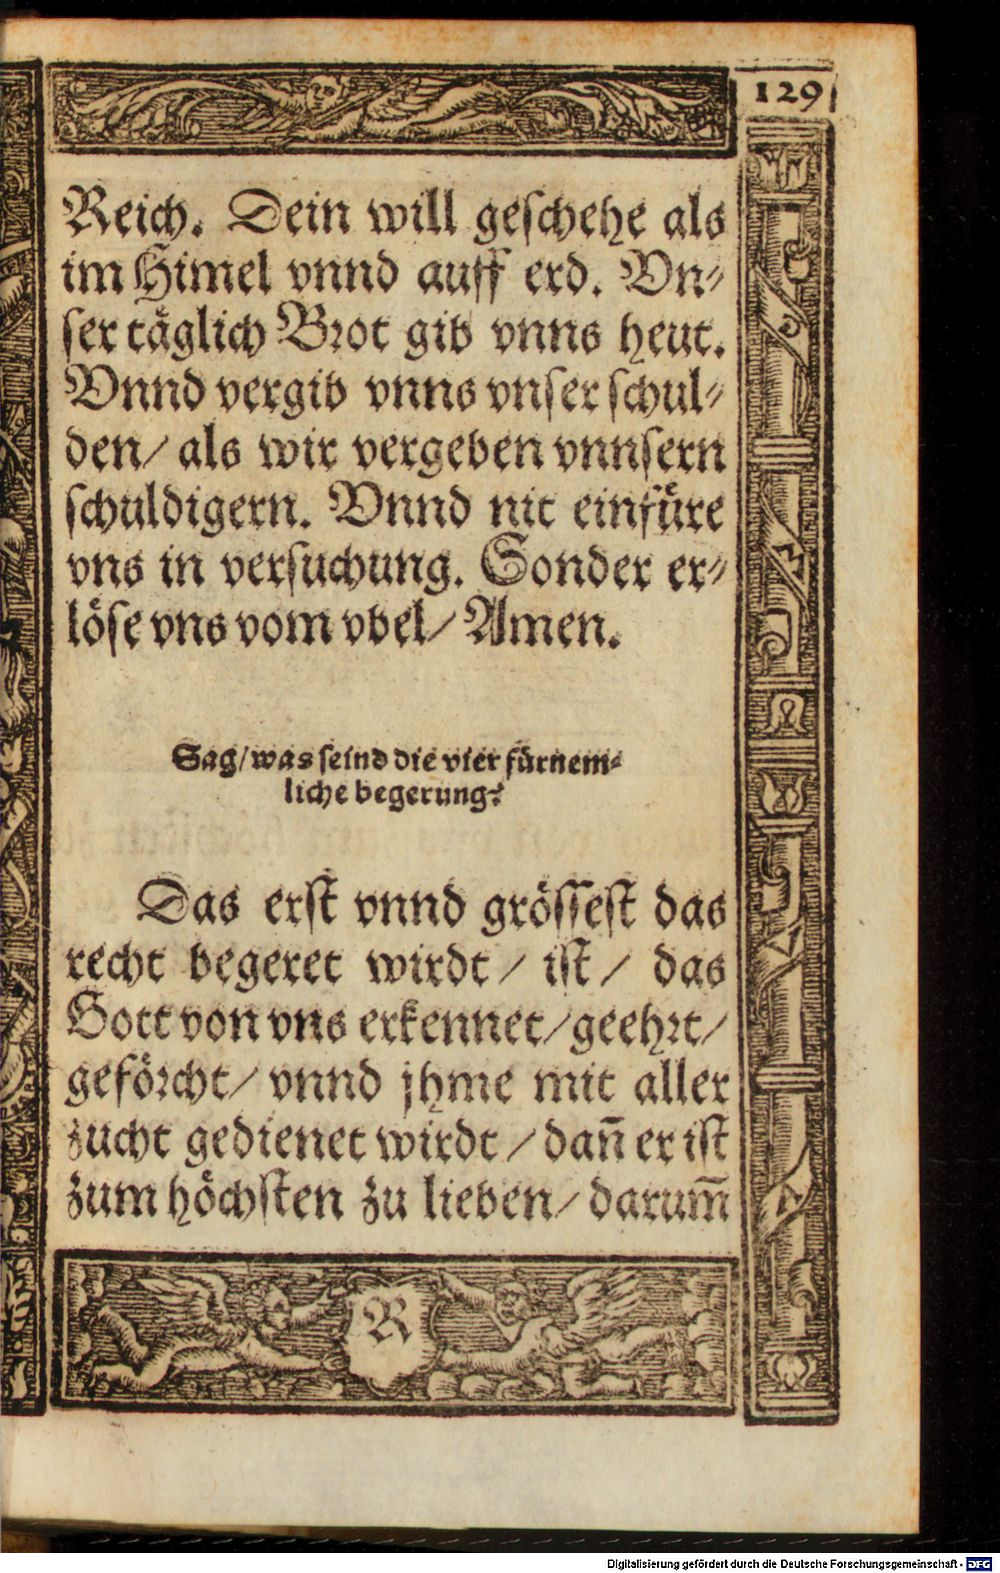 129
Reich. Dein will geschehe als
im Himel vnnd auff erd. Vn⸗
ser täglich Brot gib vnns heut.
Vnnd vergib vnns vnser schul⸗
den/ als wir vergeben vnnsern
schuldigern. Vnnd nit einfüre
vns in versuchung. Sonder er⸗
löse vns vom vbel/ Amen.
Sag/ was seind die vier fürnem⸗
liche begerung?
Das erst vnnd grössest das
recht begeret wirdt / ist / das
Gott von vns erkennet/ geehrt/
geförcht/ vnnd jhme mit aller
zucht gedienet wirdt / dañ er ist
zum höchsten zu lieben/ darum̃
R
Digitalisierung gefördert durch die Deutsche Forschungsgemeinschaft - DFG